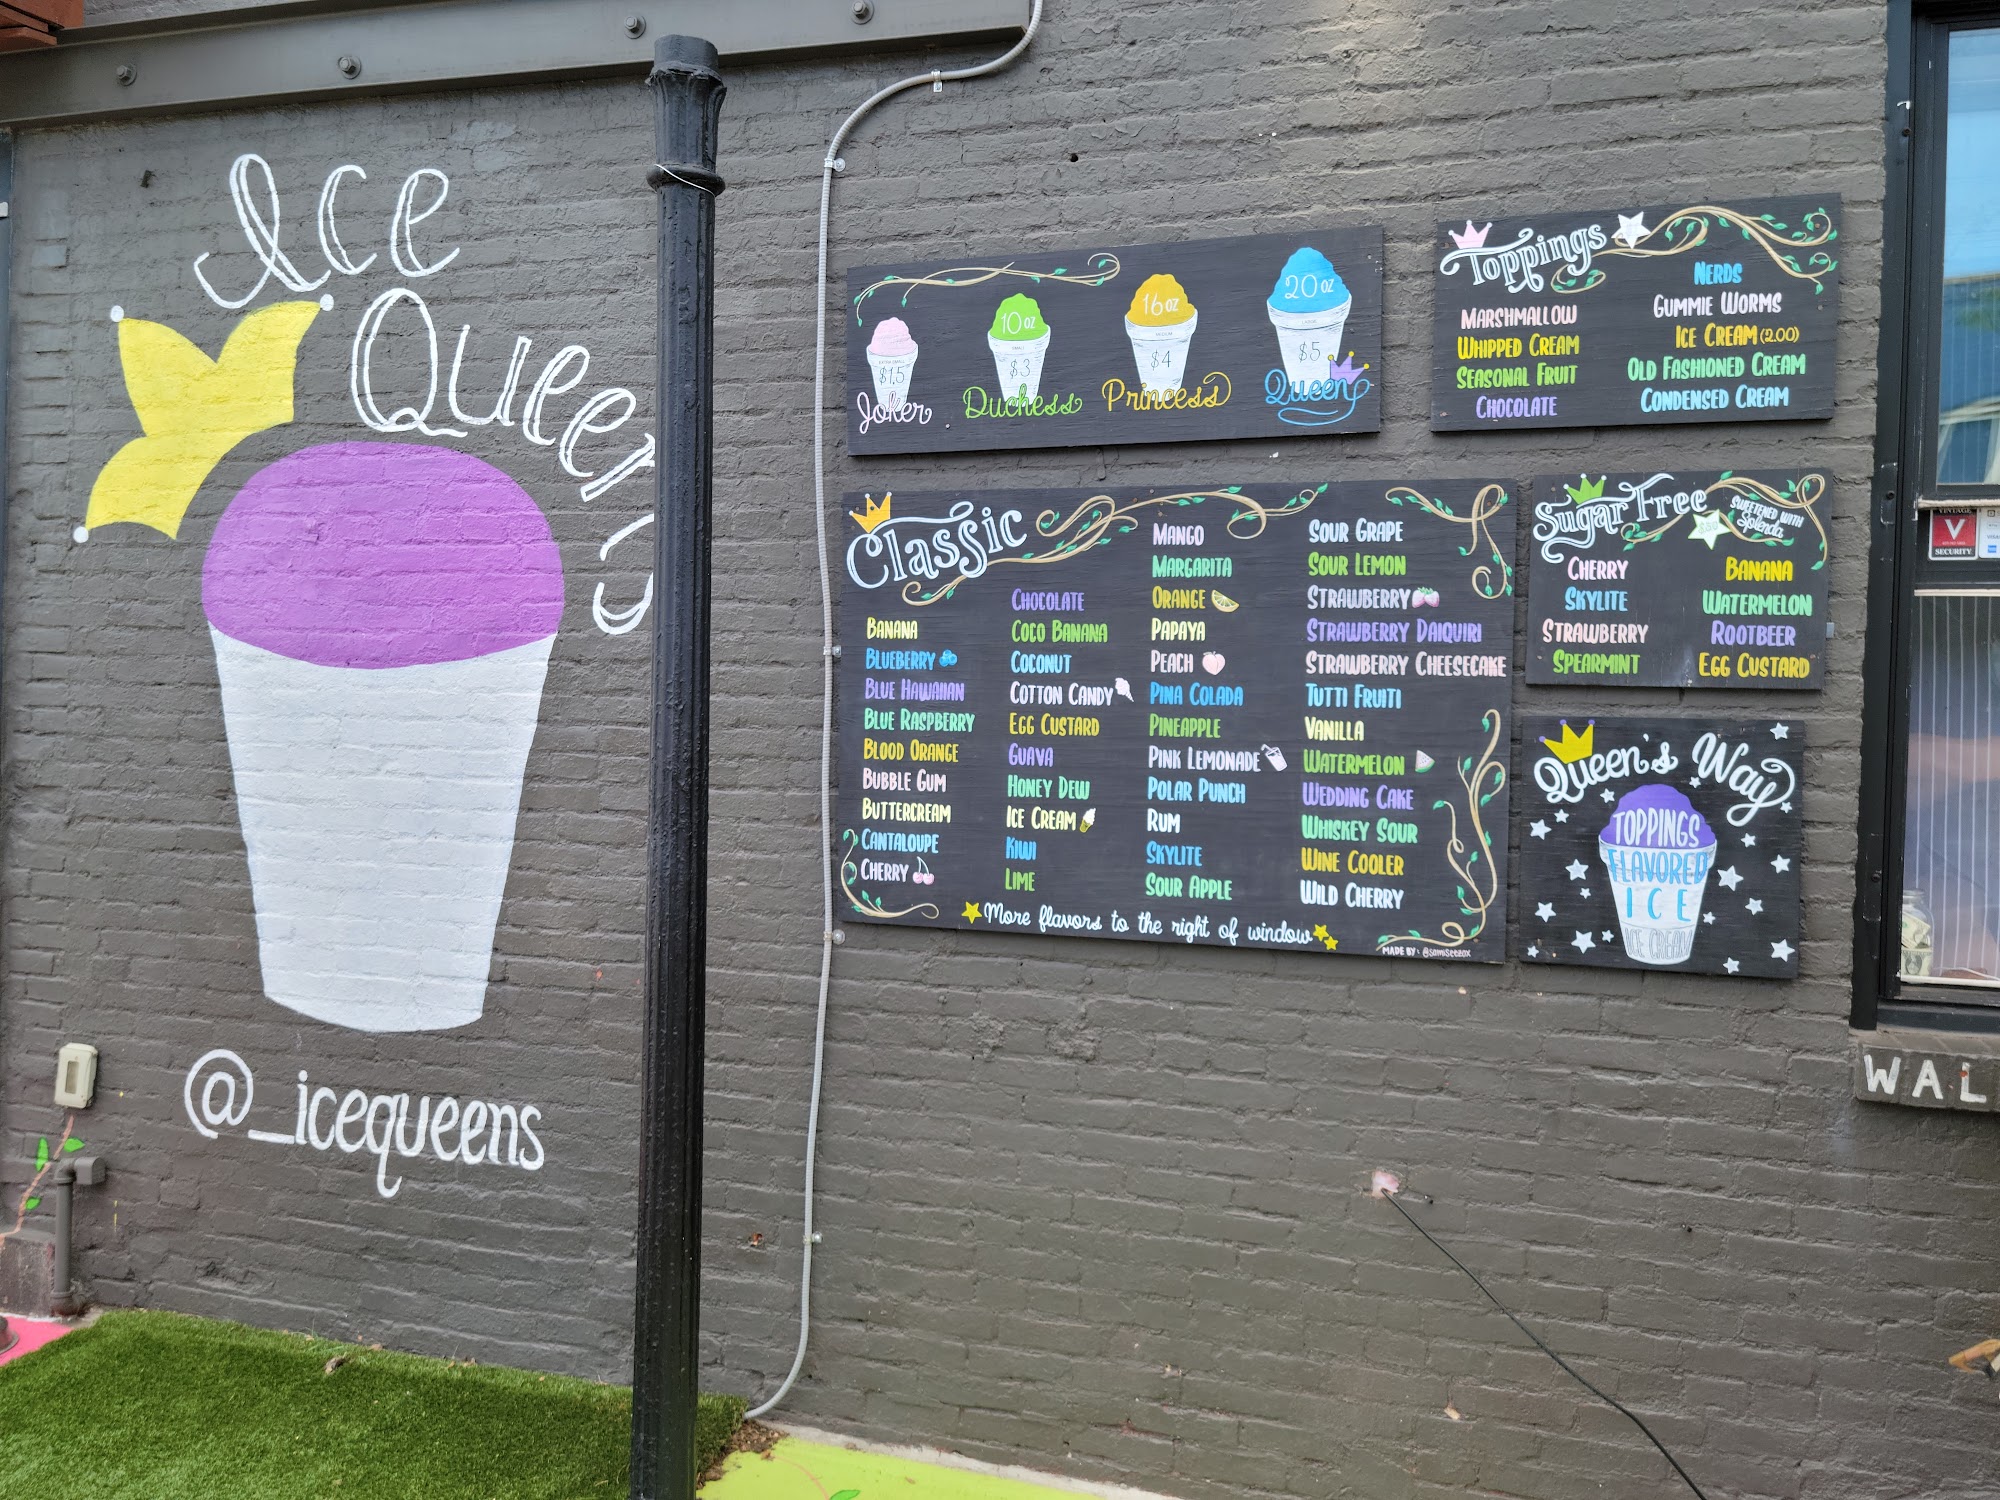 Ice
Queens
@_icequeens
10 oz
16 oz
20 oz
EXTRA SMALL
SMALL
MEDIUM
LARGE
$1.5
$3
$4
$5
Joker
Duchess
Princess
Queen
Toppings
MARSHMALLOW
WHIPPED CREAM
SEASONAL FRUIT
CHOCOLATE
NERDS
GUMMIE WORMS
ICE CREAM (2.00)
OLD FASHIONED CREAM
CONDENSED CREAM
Classic
BANANA
BLUEBERRY
BLUE HAWAIIAN
BLUE RASPBERRY
BLOOD ORANGE
BUBBLE GUM
BUTTERCREAM
CANTALOUPE
CHERRY
CHOCOLATE
COCO BANANA
COCONUT
COTTON CANDY
EGG CUSTARD
GUAVA
HONEY DEW
ICE CREAM
KIWI
LIME
MANGO
MARGARITA
ORANGE
PAPAYA
PEACH
PINA COLADA
PINEAPPLE
PINK LEMONADE
POLAR PUNCH
RUM
SKYLITE
SOUR APPLE
SOUR GRAPE
SOUR LEMON
STRAWBERRY
STRAWBERRY DAIQUIRI
STRAWBERRY CHEESECAKE
TUTTI FRUITI
VANILLA
WATERMELON
WEDDING CAKE
WHISKEY SOUR
WINE COOLER
WILD CHERRY
More flavors to the right of window
MADE BY: @samiseezox
Sugar Free
SWEETENED WITH
Splenda
CHERRY
SKYLITE
STRAWBERRY
SPEARMINT
BANANA
WATERMELON
ROOTBEER
EGG CUSTARD
Queen's Way
TOPPINGS
FLAVORED
ICE
ICE CREAM
VINTAGE
V
SECURITY
WAL